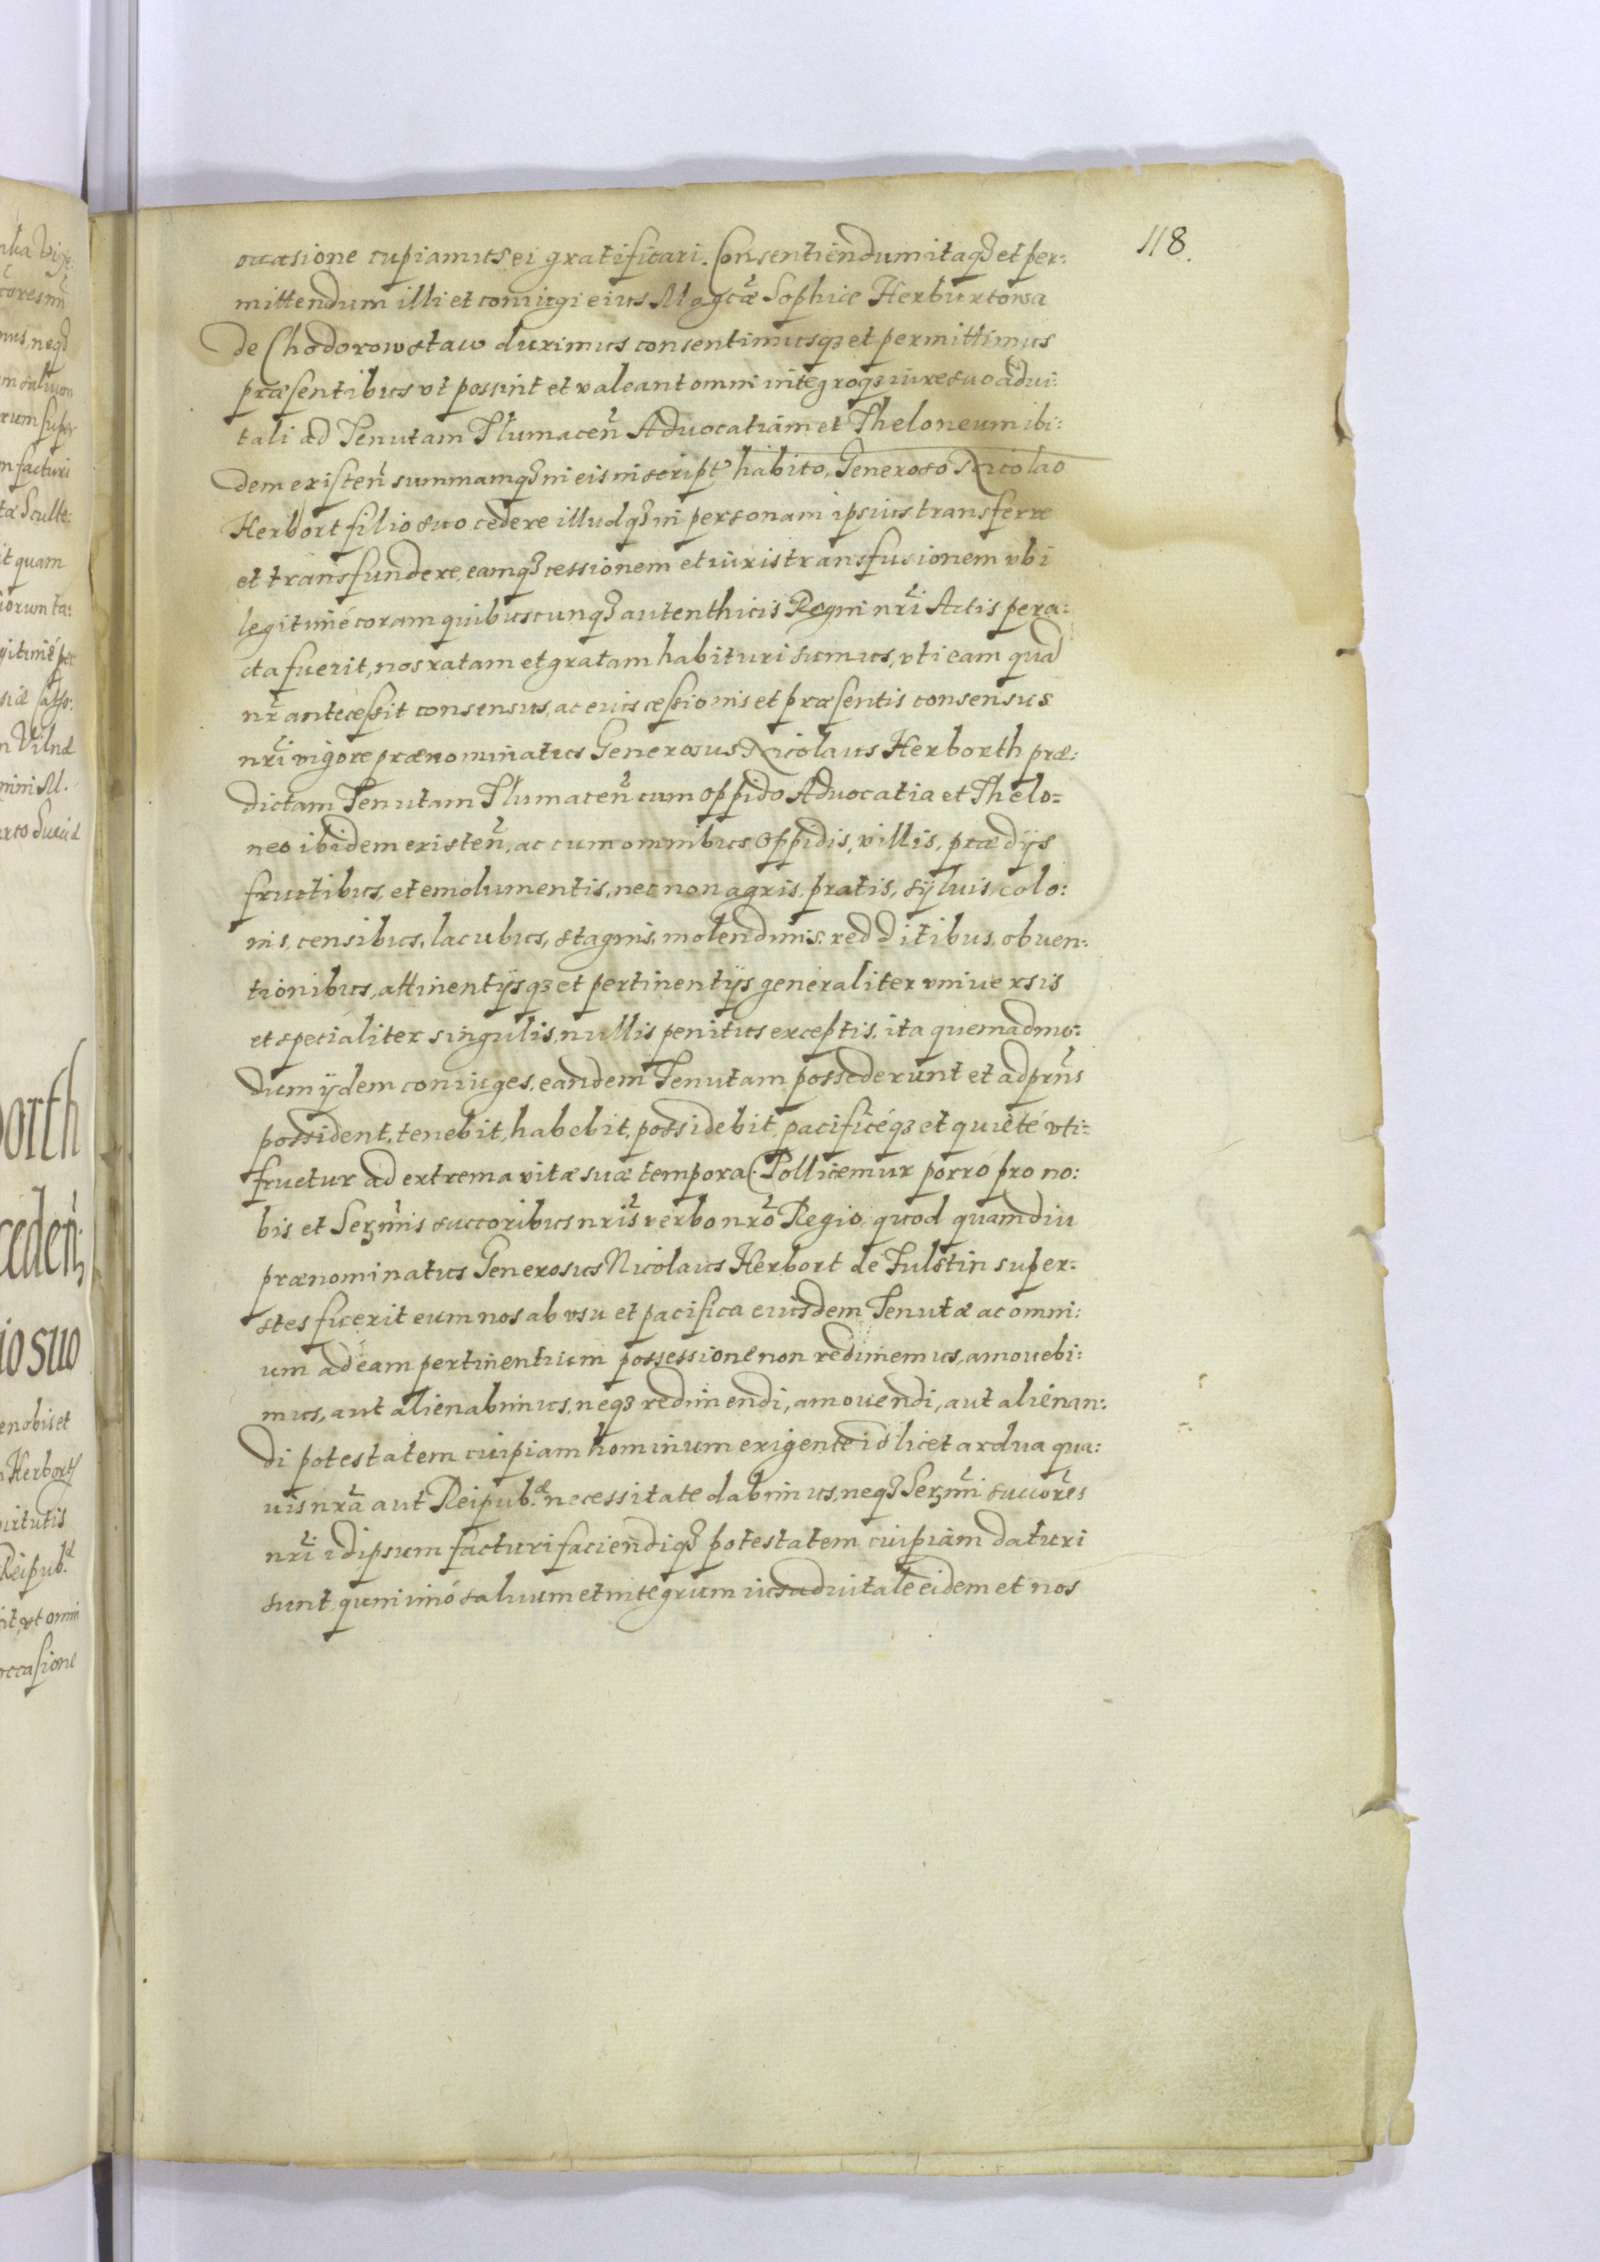 118.
occasione cupiamus ei gratificari. Consentiendum itaqȝ et per:
mittendum illi et coniugi eius Magcæ Sophiæ Herburtowa
de Chodorowstaw duximus consentimusqȝ et permittimus
præsentibus vt possint et valeant omni integroqȝ iure suo adui:
tali ad Tenutam Tlumaceñ Aduocatiam et Theloneum ibi:
dem existeñ summamqȝ in eis inscript habito, Generoso Nicolao
Herbort filio suo cedere illudqȝ in personam ipsius transferre
et transfundere, eamqȝ cessionem et iuris transfusionem vbi
legitimé coram quibuscunqȝ autenthicis Regni nr̃i Actis pera:
cta fuerit, nos ratam et gratam habituri sumus, vti eam quad
nr̃ antecessit consensus, ac eius cessionis et præsentis consensus
nr̃i vigore prænominatus Generosus Nicolaus Herborth præ:
dictam Tenutam Tlumaceñ cum oppido Aduocatia et Thelo=
neo ibidem existeñ, ac cum omnibus oppidis, villis, prædijs
fructibus, et emolumentis, nec non agris, pratis, syluis, colo:
nis, censibus, lacubus, stagnis, molendinis, redditibus, obuen:
tionibus, attinentijsqȝ et pertinentijs generaliter vniuersis
et specialiter singulis, nullis penitus exceptis, ita quemadmo:
dum ijdem coniuges, eandem Tenutam possederunt et ad prñs
possident, tenebit, habebit, possidebit, pacificéqȝ et quieté vti=
fruetur ad extrema vitæ suæ tempora. Pollicemur porró pro no:
bis et Serm̃is succoribus nr̃is verbo nr̃o Regio, quod quamdiu
prænominatus Generosus Nicolaus Herbort de Fulstin super:
stes fuerit eum nos ab vsu et pacifica eiusdem Tenutæ ac omni:
um ad eam pertinentium possessione non redimemus, amouebi:
mus, aut alienabimus, neqȝ redimendi, amouendi, aut alienan:
di potestatem cuipiam hominum exigente id licet ardua qua:
uis nr̃a aut Reipub.æ necessitate dabimus, neqȝ Serm̃i succores
nr̃i idipsum facturi faciendiqȝ potestatem cuipiam daturi
sunt, quin imó saluum et integrum ius aduitale eidem et nos